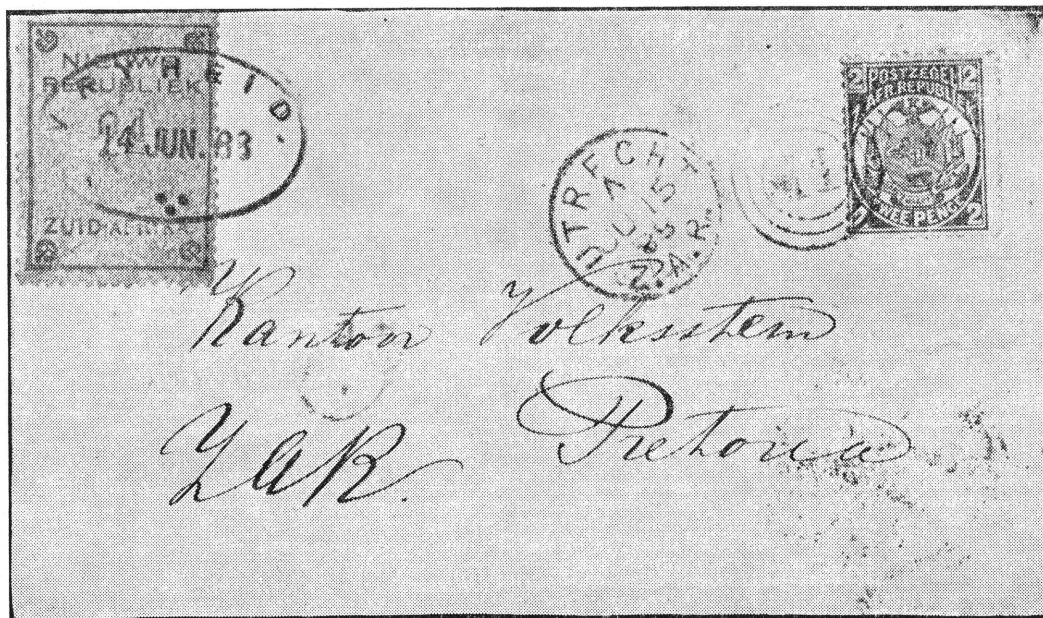 NIEUWE
REPUBLIEK
VRYHEID.
14 JUN. 83
ZUID-AFRIKA
UTRECHT
A
JU 15
86
Z.A.R.
2 POSTZEGEL 2
AFR. REPUBLIEK
TWEE PENCE 2
Kantoor Volksstem
ZAR. Pretoria